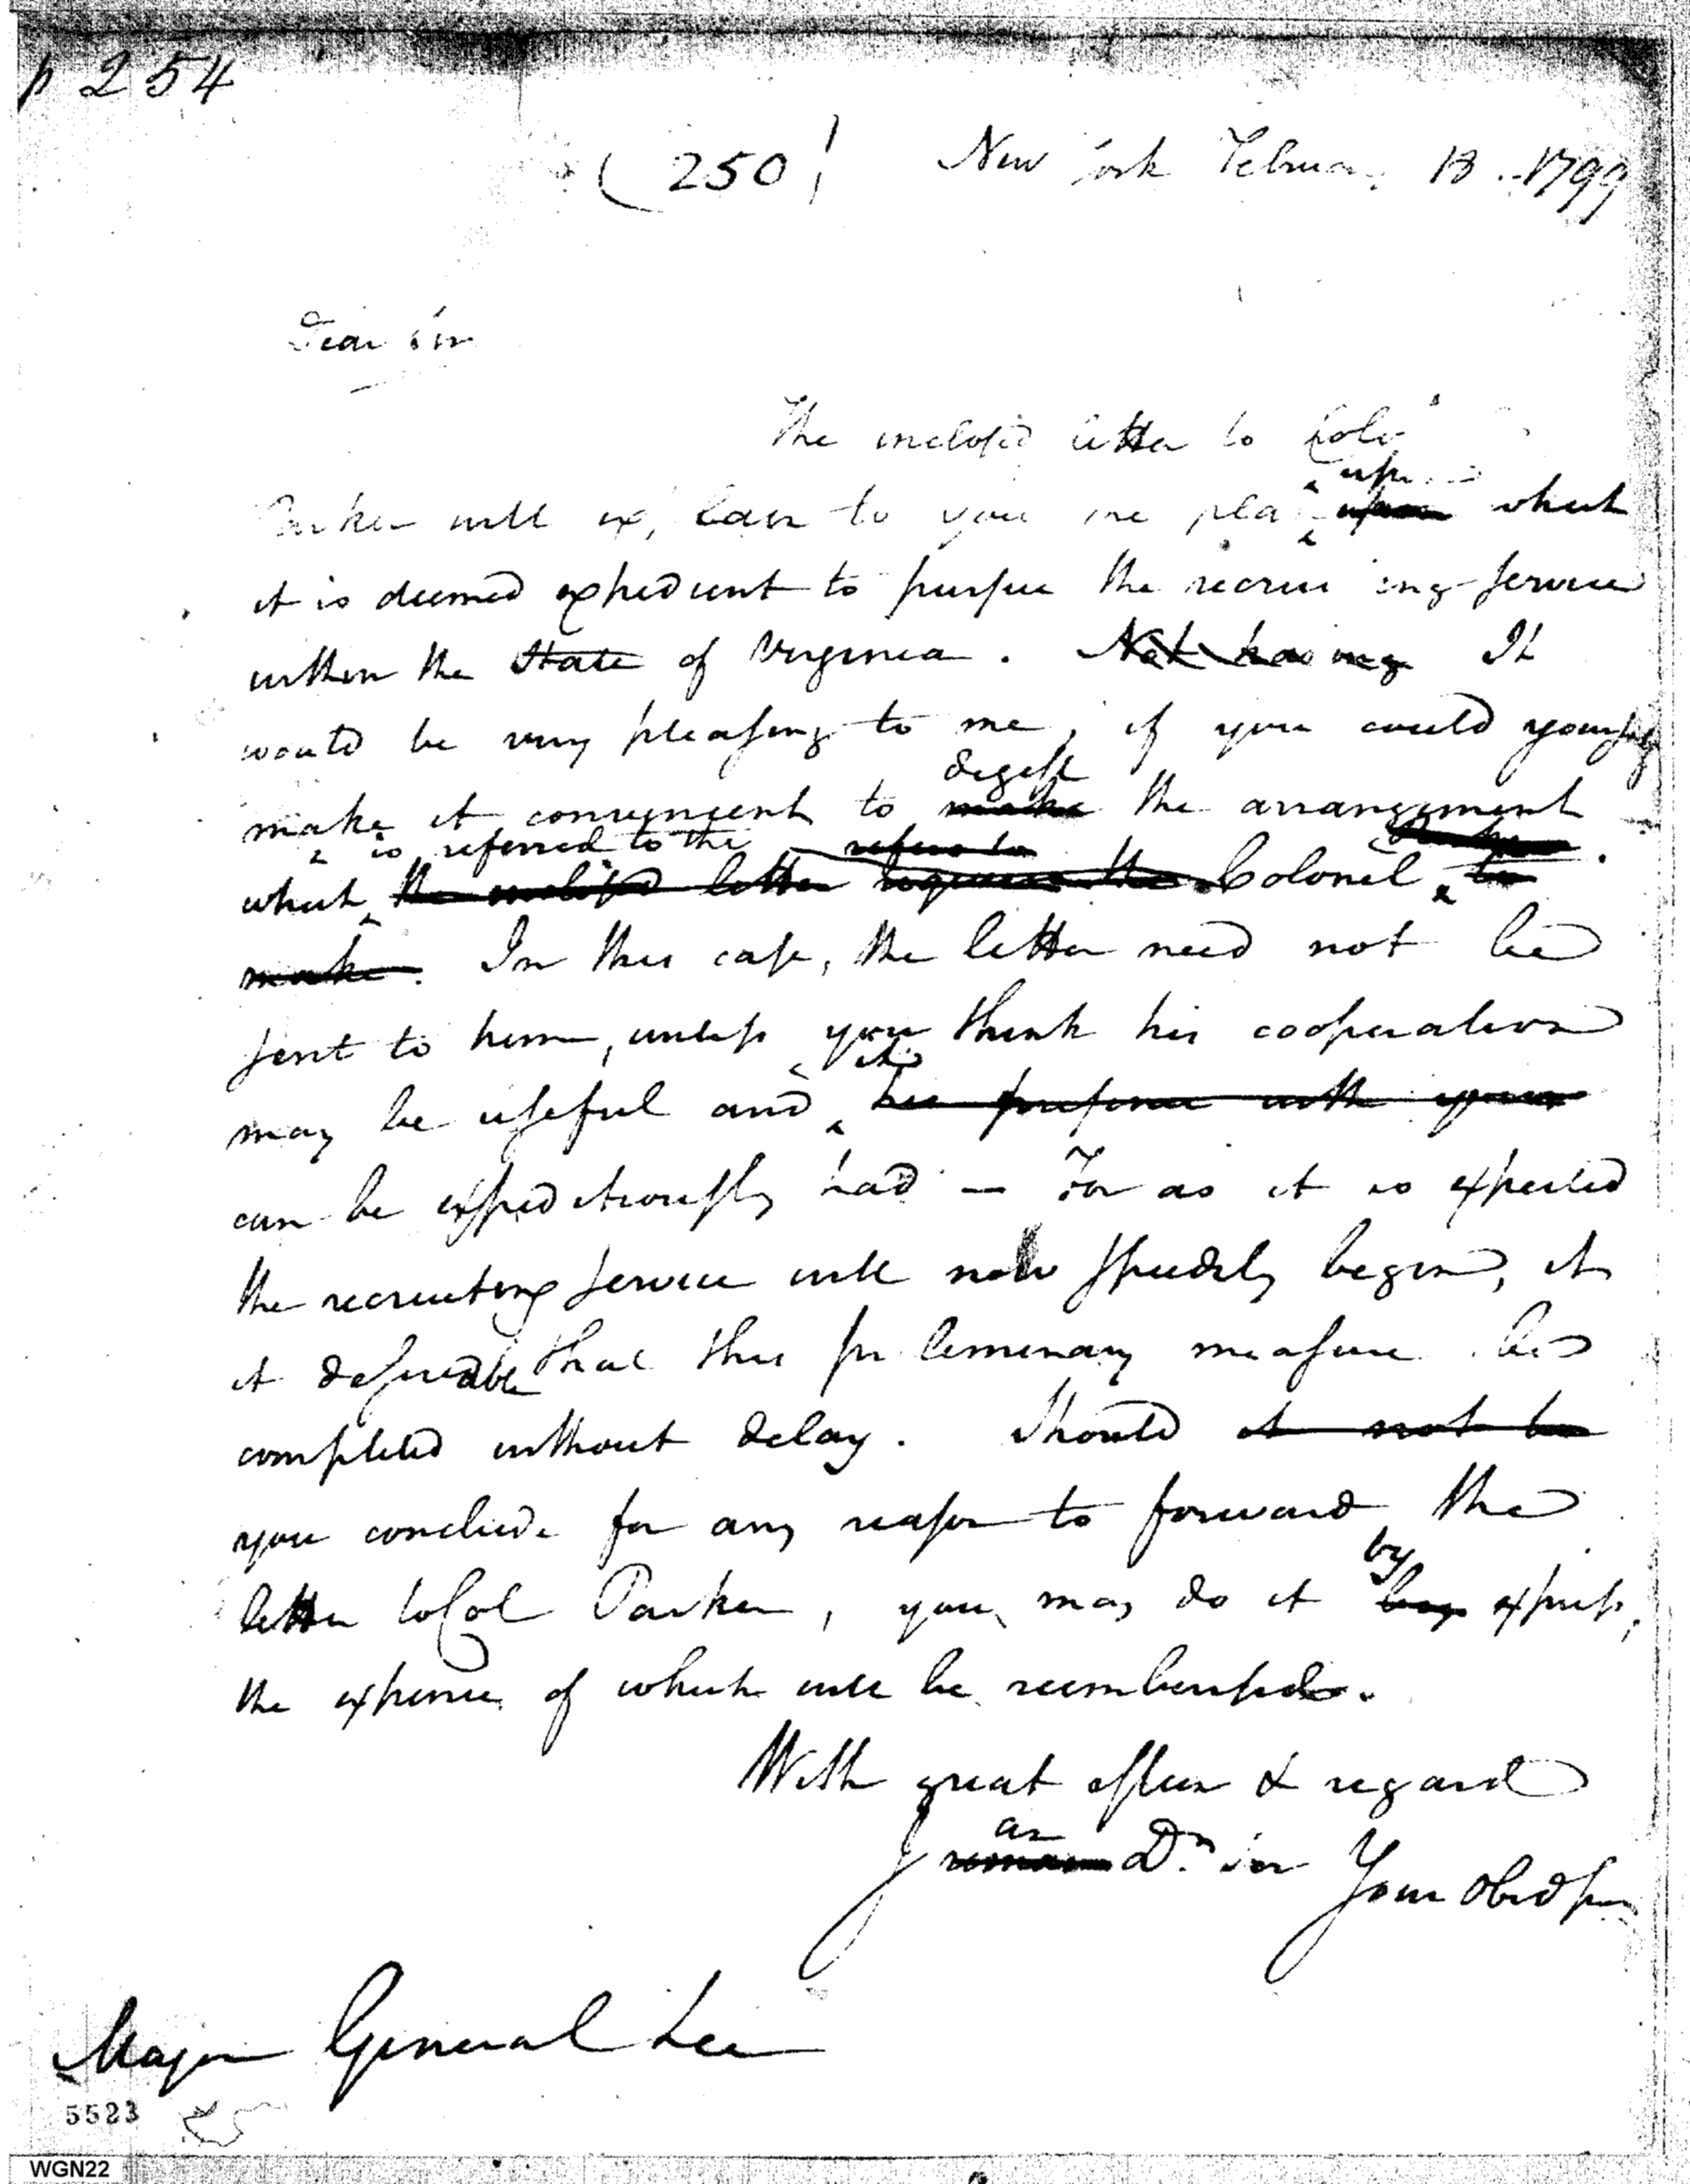 p 254
(250) New York February 18. 1799
Dear Sir
The inclosed letter to Col
Parker will explain to you the plan
upon
upon which
it is deemed expedient to pursue the recruiting service
within the State of Virginia. Not having It
would be very pleasing to me, if you could yourself
digest
make it convenient to make the arrangement
is referred to the refers to Parker
which the inclosed letter requires the Colonel to
make. In this case, the letter need not be
sent to him, unless you think his cooperation
it
may be useful and his presence with you
can be expeditiously had — For as it is expected
the recruiting service will now speedily begin, it
it desireable that this preliminary measure be
completed without delay. Should it not be
you conclude for any reason to forward the
by
letter to Col Parker, you may do it by express,
the expence of which will be reimbursed.
With great esteem & regard
am
I remain Dr Sir Your Obed ser
Major General Lee
5523
WGN22